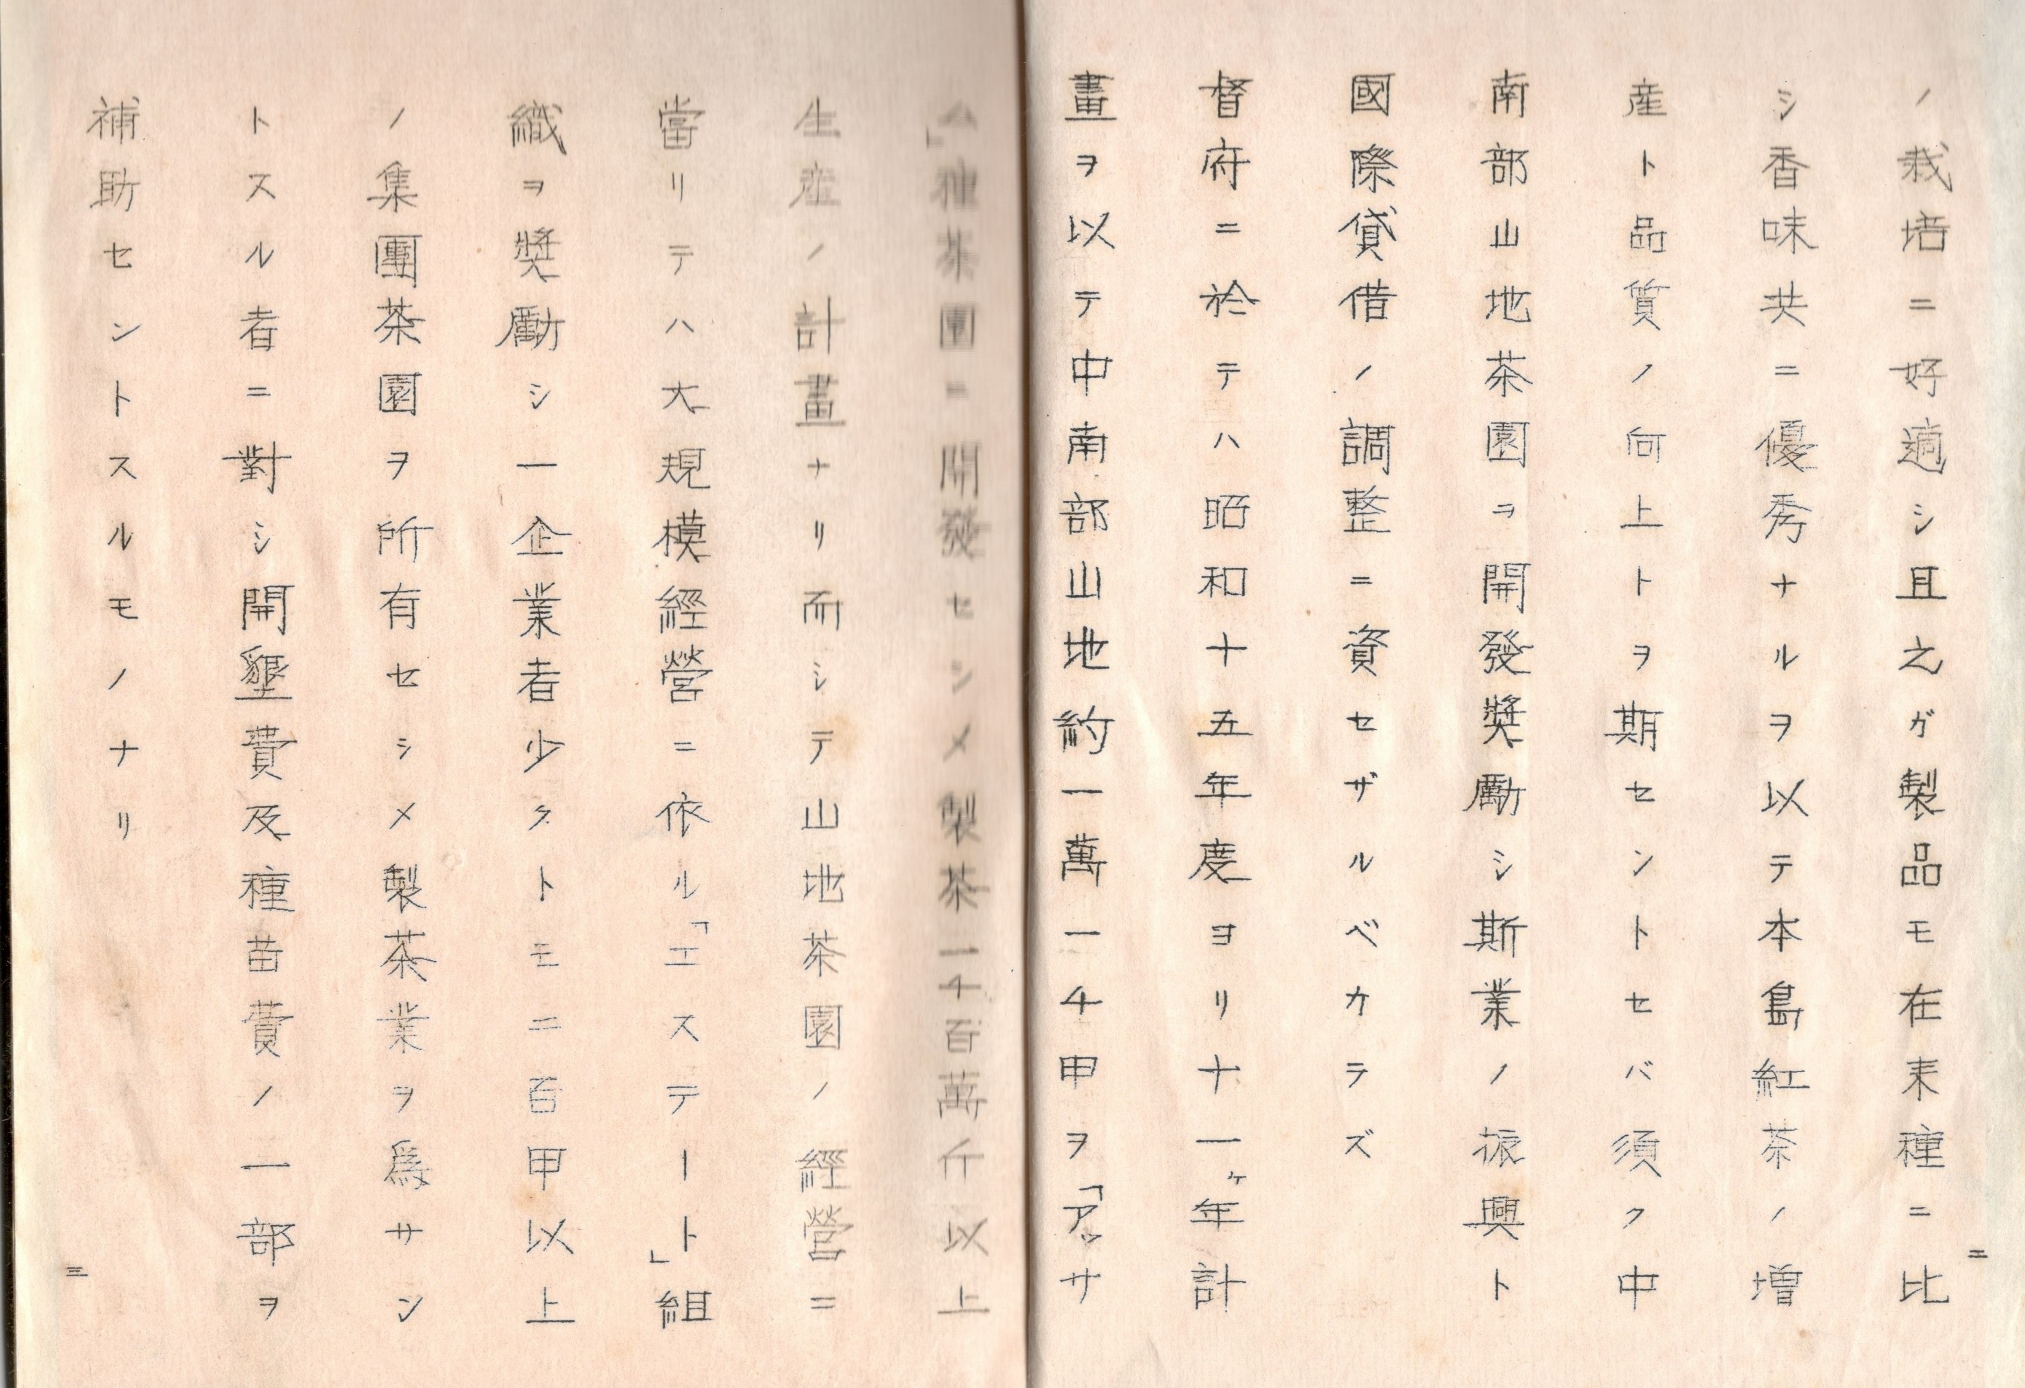 ノ栽培ニ好適シ且之ガ製品モ在来種ニ比
シ香味共ニ優秀ナルヲ以テ本島紅茶ノ増
産ト品質ノ向上トヲ期セントセバ須ク中
南部山地茶園ヲ開發奬勵シ斯業ノ振興ト
國際貸借ノ調整ニ資セザルベカラズ
督府ニ於テハ昭和十五年度ヨリ十一ヶ年計
畫ヲ以テ中南部山地約一萬一千甲ヲ「アッサ
ム」種茶園ニ開發セシメ製茶一千百萬斤以上
生産ノ計畫ナリ而シテ山地茶園ノ經營ニ
當リテハ大規模經營ニ依ル「エステート」組
織ヲ奬勵シ一企業者少クトモ二百甲以上
ノ集團茶園ヲ所有セシメ製茶業ヲ爲サン
トスル者ニ對シ開墾費及種苗費ノ一部ヲ
補助セントスルモノナリ
二
三